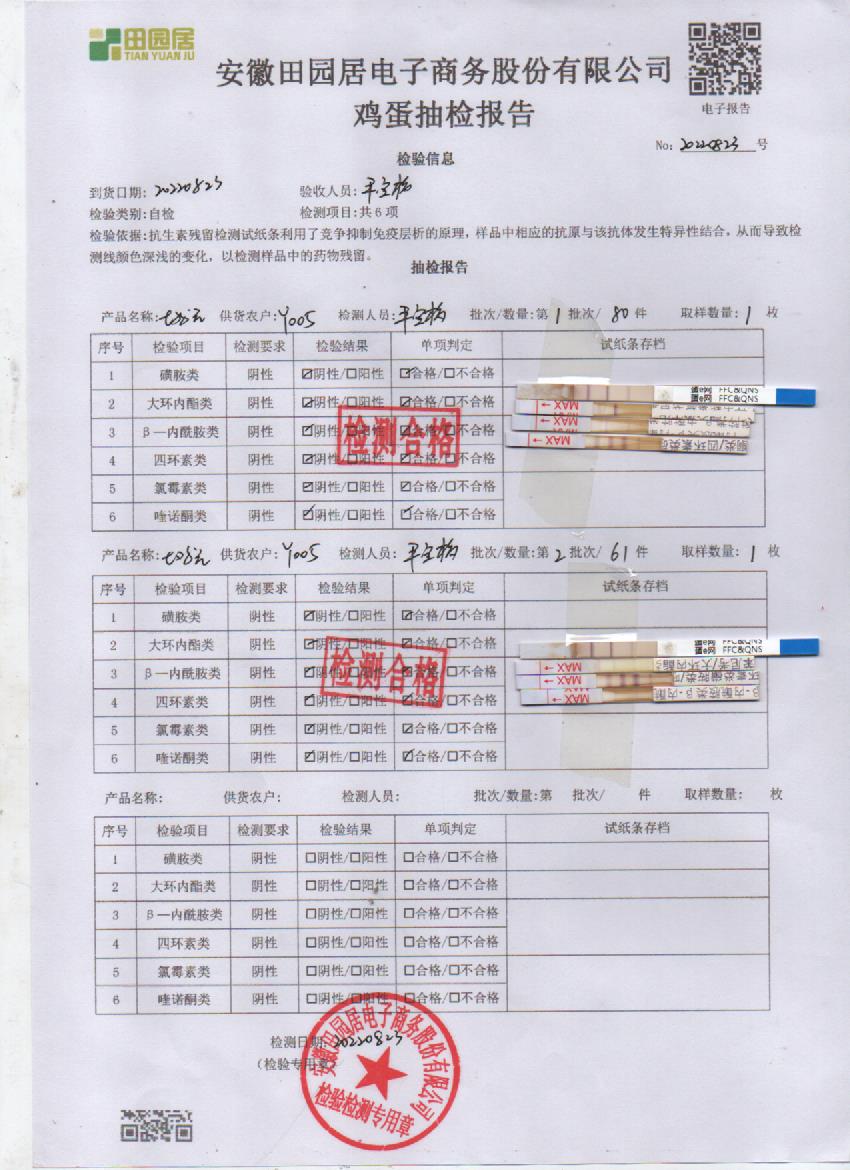 田园居
TIAN YUAN JU
安徽田园居电子商务股份有限公司
鸡蛋抽检报告
电子报告
No: 20220823 号
检验信息
到货日期: 20220823 验收人员:
检验类别:自检 检测项目:共6项
检验依据:抗生素残留检测试纸条利用了竞争抑制免疫层析的原理，样品中相应的抗原与该抗体发生特异性结合，从而导致检
测线颜色深浅的变化，以检测样品中的药物残留。
抽检报告
产品名称: 供货农户:Y005 检测人员: 批次/数量:第1批次/80件 取样数量:1枚
序号 检验项目 检测要求 检验结果 单项判定 试纸条存档
1 磺胺类 阴性 ☑阴性/□阳性 ☑合格/□不合格
2 大环内酯类 阴性 ☑阴性/□阳性 ☑合格/□不合格
3 β—内酰胺类 阴性 ☑阴性/□阳性 ☑合格/□不合格
4 四环素类 阴性 ☑阴性/□阳性 ☑合格/□不合格
5 氯霉素类 阴性 ☑阴性/□阳性 ☑合格/□不合格
6 喹诺酮类 阴性 ☑阴性/□阳性 ☑合格/□不合格
检测合格
FFC&QNS
FFC&QNS
MAX
MAX
MAX
酮类/四环素类
产品名称: 供货农户:Y005 检测人员: 批次/数量:第2批次/61件 取样数量:1枚
序号 检验项目 检测要求 检验结果 单项判定 试纸条存档
1 磺胺类 阴性 ☑阴性/□阳性 ☑合格/□不合格
2 大环内酯类 阴性 ☑阴性/□阳性 ☑合格/□不合格
3 β—内酰胺类 阴性 ☑阴性/□阳性 ☑合格/□不合格
4 四环素类 阴性 ☑阴性/□阳性 ☑合格/□不合格
5 氯霉素类 阴性 ☑阴性/□阳性 ☑合格/□不合格
6 喹诺酮类 阴性 ☑阴性/□阳性 ☑合格/□不合格
检测合格
FFC&QNS
FFC&QNS
MAX
MAX
MAX
产品名称: 供货农户: 检测人员: 批次/数量:第 批次/ 件 取样数量: 枚
序号 检验项目 检测要求 检验结果 单项判定 试纸条存档
1 磺胺类 阴性 □阴性/□阳性 □合格/□不合格
2 大环内酯类 阴性 □阴性/□阳性 □合格/□不合格
3 β—内酰胺类 阴性 □阴性/□阳性 □合格/□不合格
4 四环素类 阴性 □阴性/□阳性 □合格/□不合格
5 氯霉素类 阴性 □阴性/□阳性 □合格/□不合格
6 喹诺酮类 阴性 □阴性/□阳性 □合格/□不合格
检测日期:20220823
（检验专用章）
安徽田园居电子商务股份有限公司
检验检测专用章